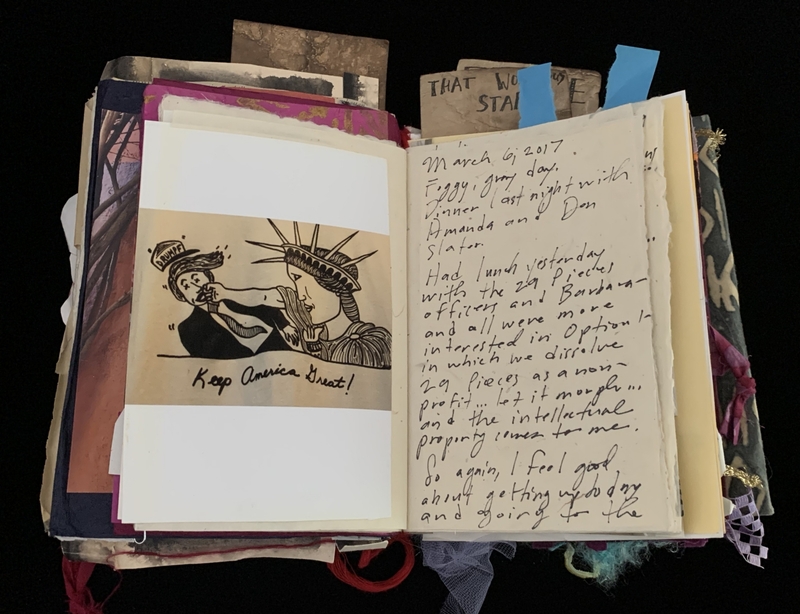 THAT WO
STA E
DRUMPF
Keep America Great!
March 6, 2017.
Foggy, gray day.
Dinner last night with
Amanda and Don
Slater.
Had lunch yesterday
with the 29 Pieces
officers and Barbara—
and all were more
interested in Option 1-
in which we dissolve
29 Pieces as a non-
profit... let it morph...
and the intellectual
property comes to me.
So again, I feel good
about getting up today
and going to the